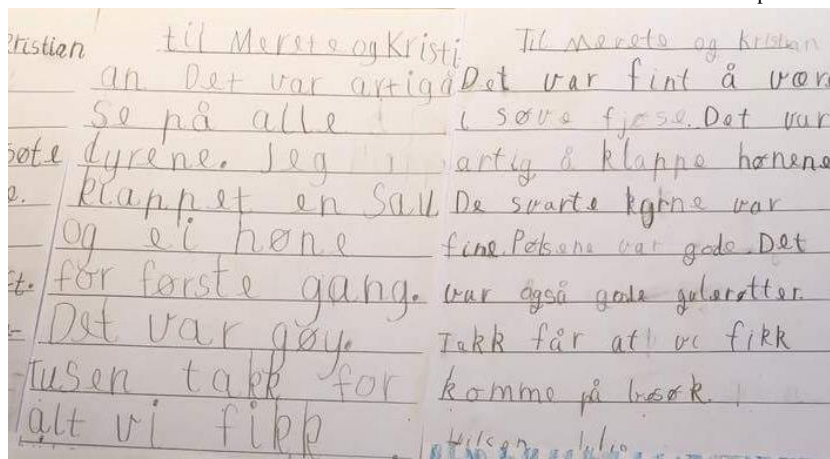 ristian
øte
e.
t.
til Merete og Kristi
an Det var artig å
se på alle
dyrene. Jeg
klappet en Sau
og ei høne
før første gang.
Det var gøy.
Tusen takk for
alt vi fikk
Til Merete og Kristian
Det var fint å vær
i søve fjøse. Det var
artig å klappe hønene
De svarte kyrne var
fine. Pølsene var gode. Det
var også gode gulerøtter.
Takk får at vi fikk
komme på besøk.
Hilsen